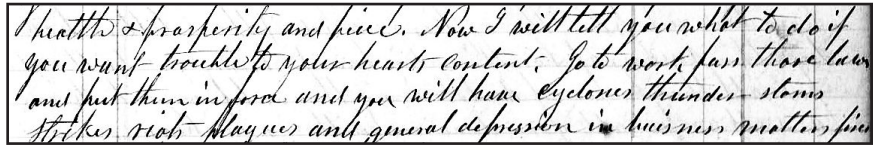 health & prosperity and piece. Now I will tell you what to do if
you want trouble to your hearts content. Go to work pass those laws
and put them in force and you will have cyclones thunder storms
strikes riots plagues and general depression in buisness matters fires